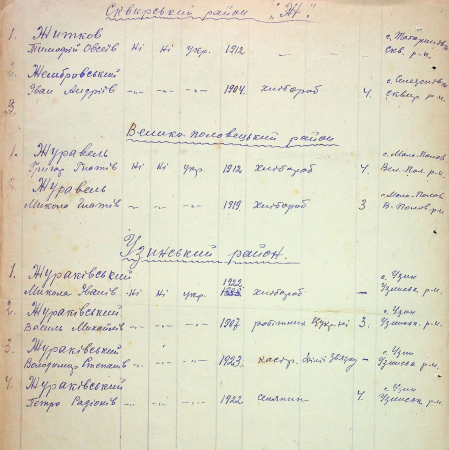 Сквирський район "Ж".
1. Житков
Тимофій Овсеїв Ні Ні укр. 1912 — —
Скв. р-н.
2. Жембровський
Іван Андріїв -"- -"- -"- 1904. хлібороб 4.
Сквир р-н.
Велико-половецький район
1. Журавель
Григор Гнатів Ні Ні укр. 1912 хлібороб 4. с. Мало-Полов
Вел-Пол. р-н.
2. Журавель
Микола Гнатів -"- -"- -"- 1919. хлібороб 3 с. Мало-Полов
В-Полов. р-н
Узинський район.
1. Жураківський
1922
Микола Іванів Ні Ні укр. хлібороб — с. Узин
Узинськ р-н.
2. Жураківський
Василь Михайлів -"- -"- -"- робітник 3. с. Узин
Узинськ. р-н
3. Жураківський
Володимир Степанів -"- -"- -"- 1923. — с. Узин
Узинськ р-н.
4. Жураківський
Петро Радіонів -"- -"- -"- 1922 селянин 4. с. Узин
Узинськ р-н.